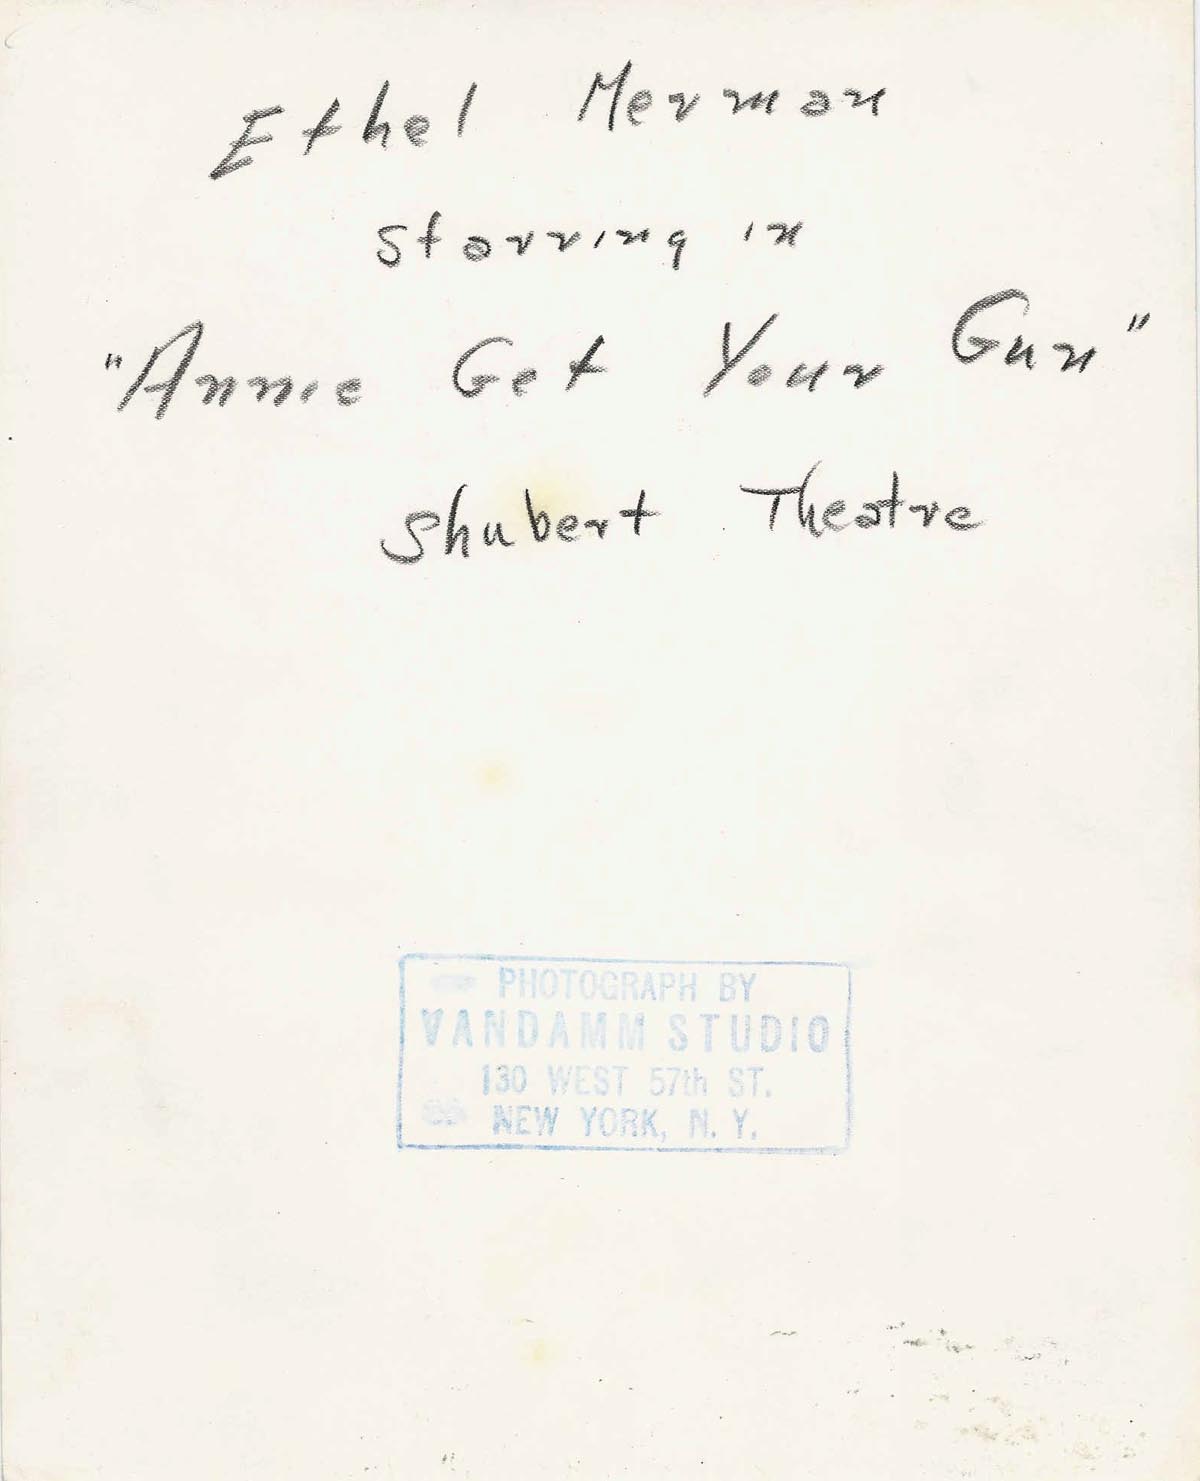 Ethel Merman
starring in
"Annie Get Your Gun"
Shubert Theatre
PHOTOGRAPH BY
VANDAMM STUDIO
130 WEST 57th ST.
NEW YORK, N. Y.